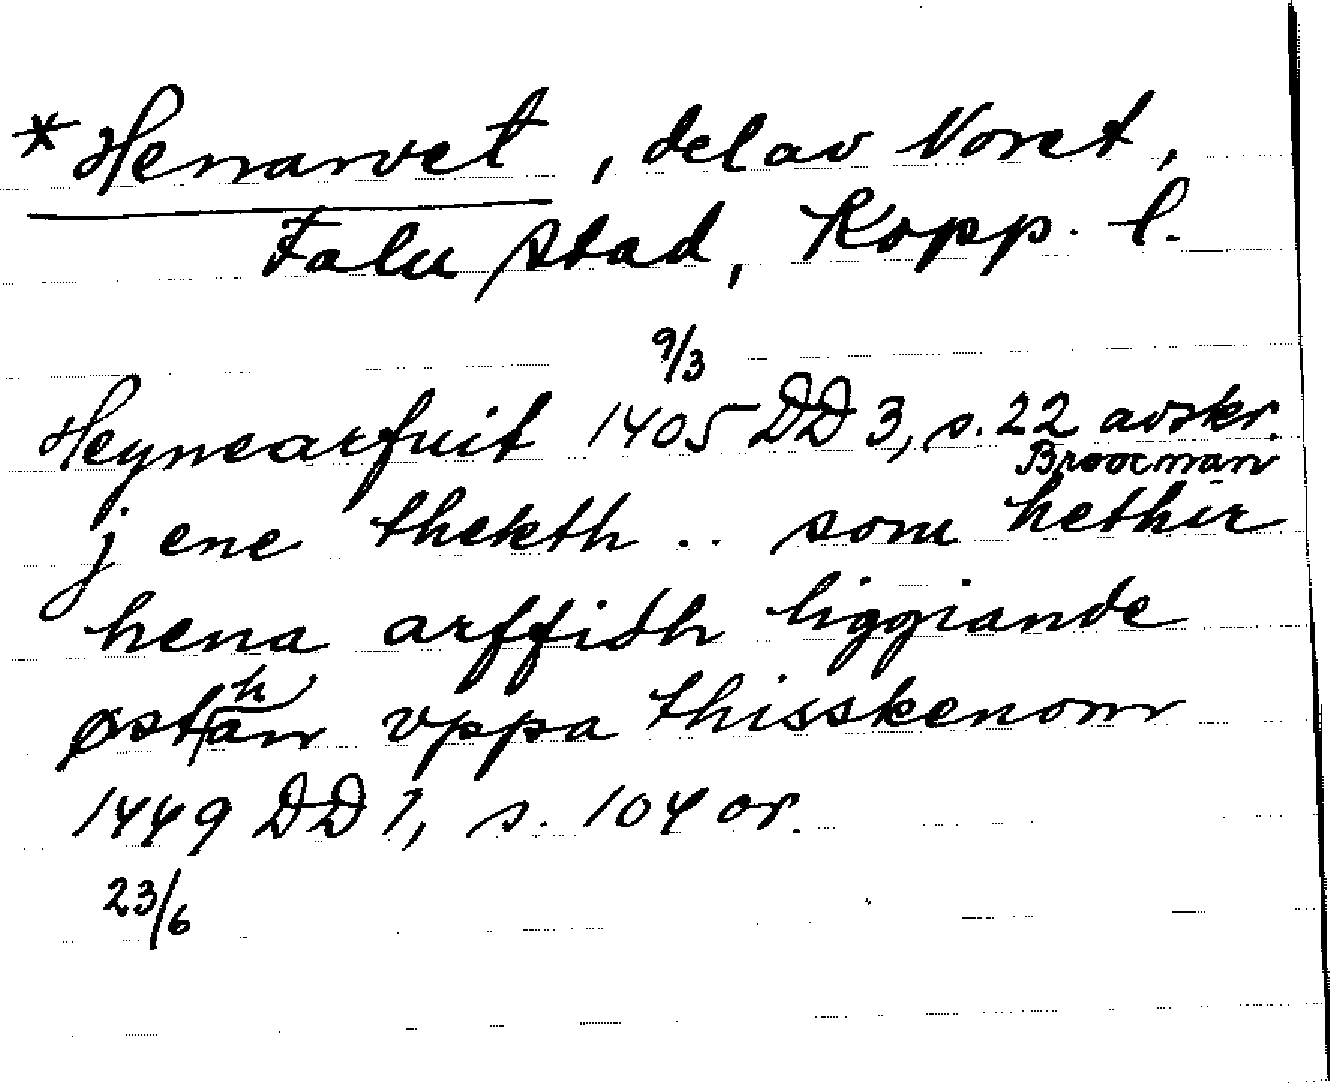 *Henarvet, del av Noret,
Falu stad, Kopp. l.
9/3
Heynearfuit 1405 DD 3, s. 22 avskr.
Broocman
j ene thekth .. som hethir
hena arffidh liggiande
østhan vppa thisskenom
1449 DD 1, s. 104 or.
23/6